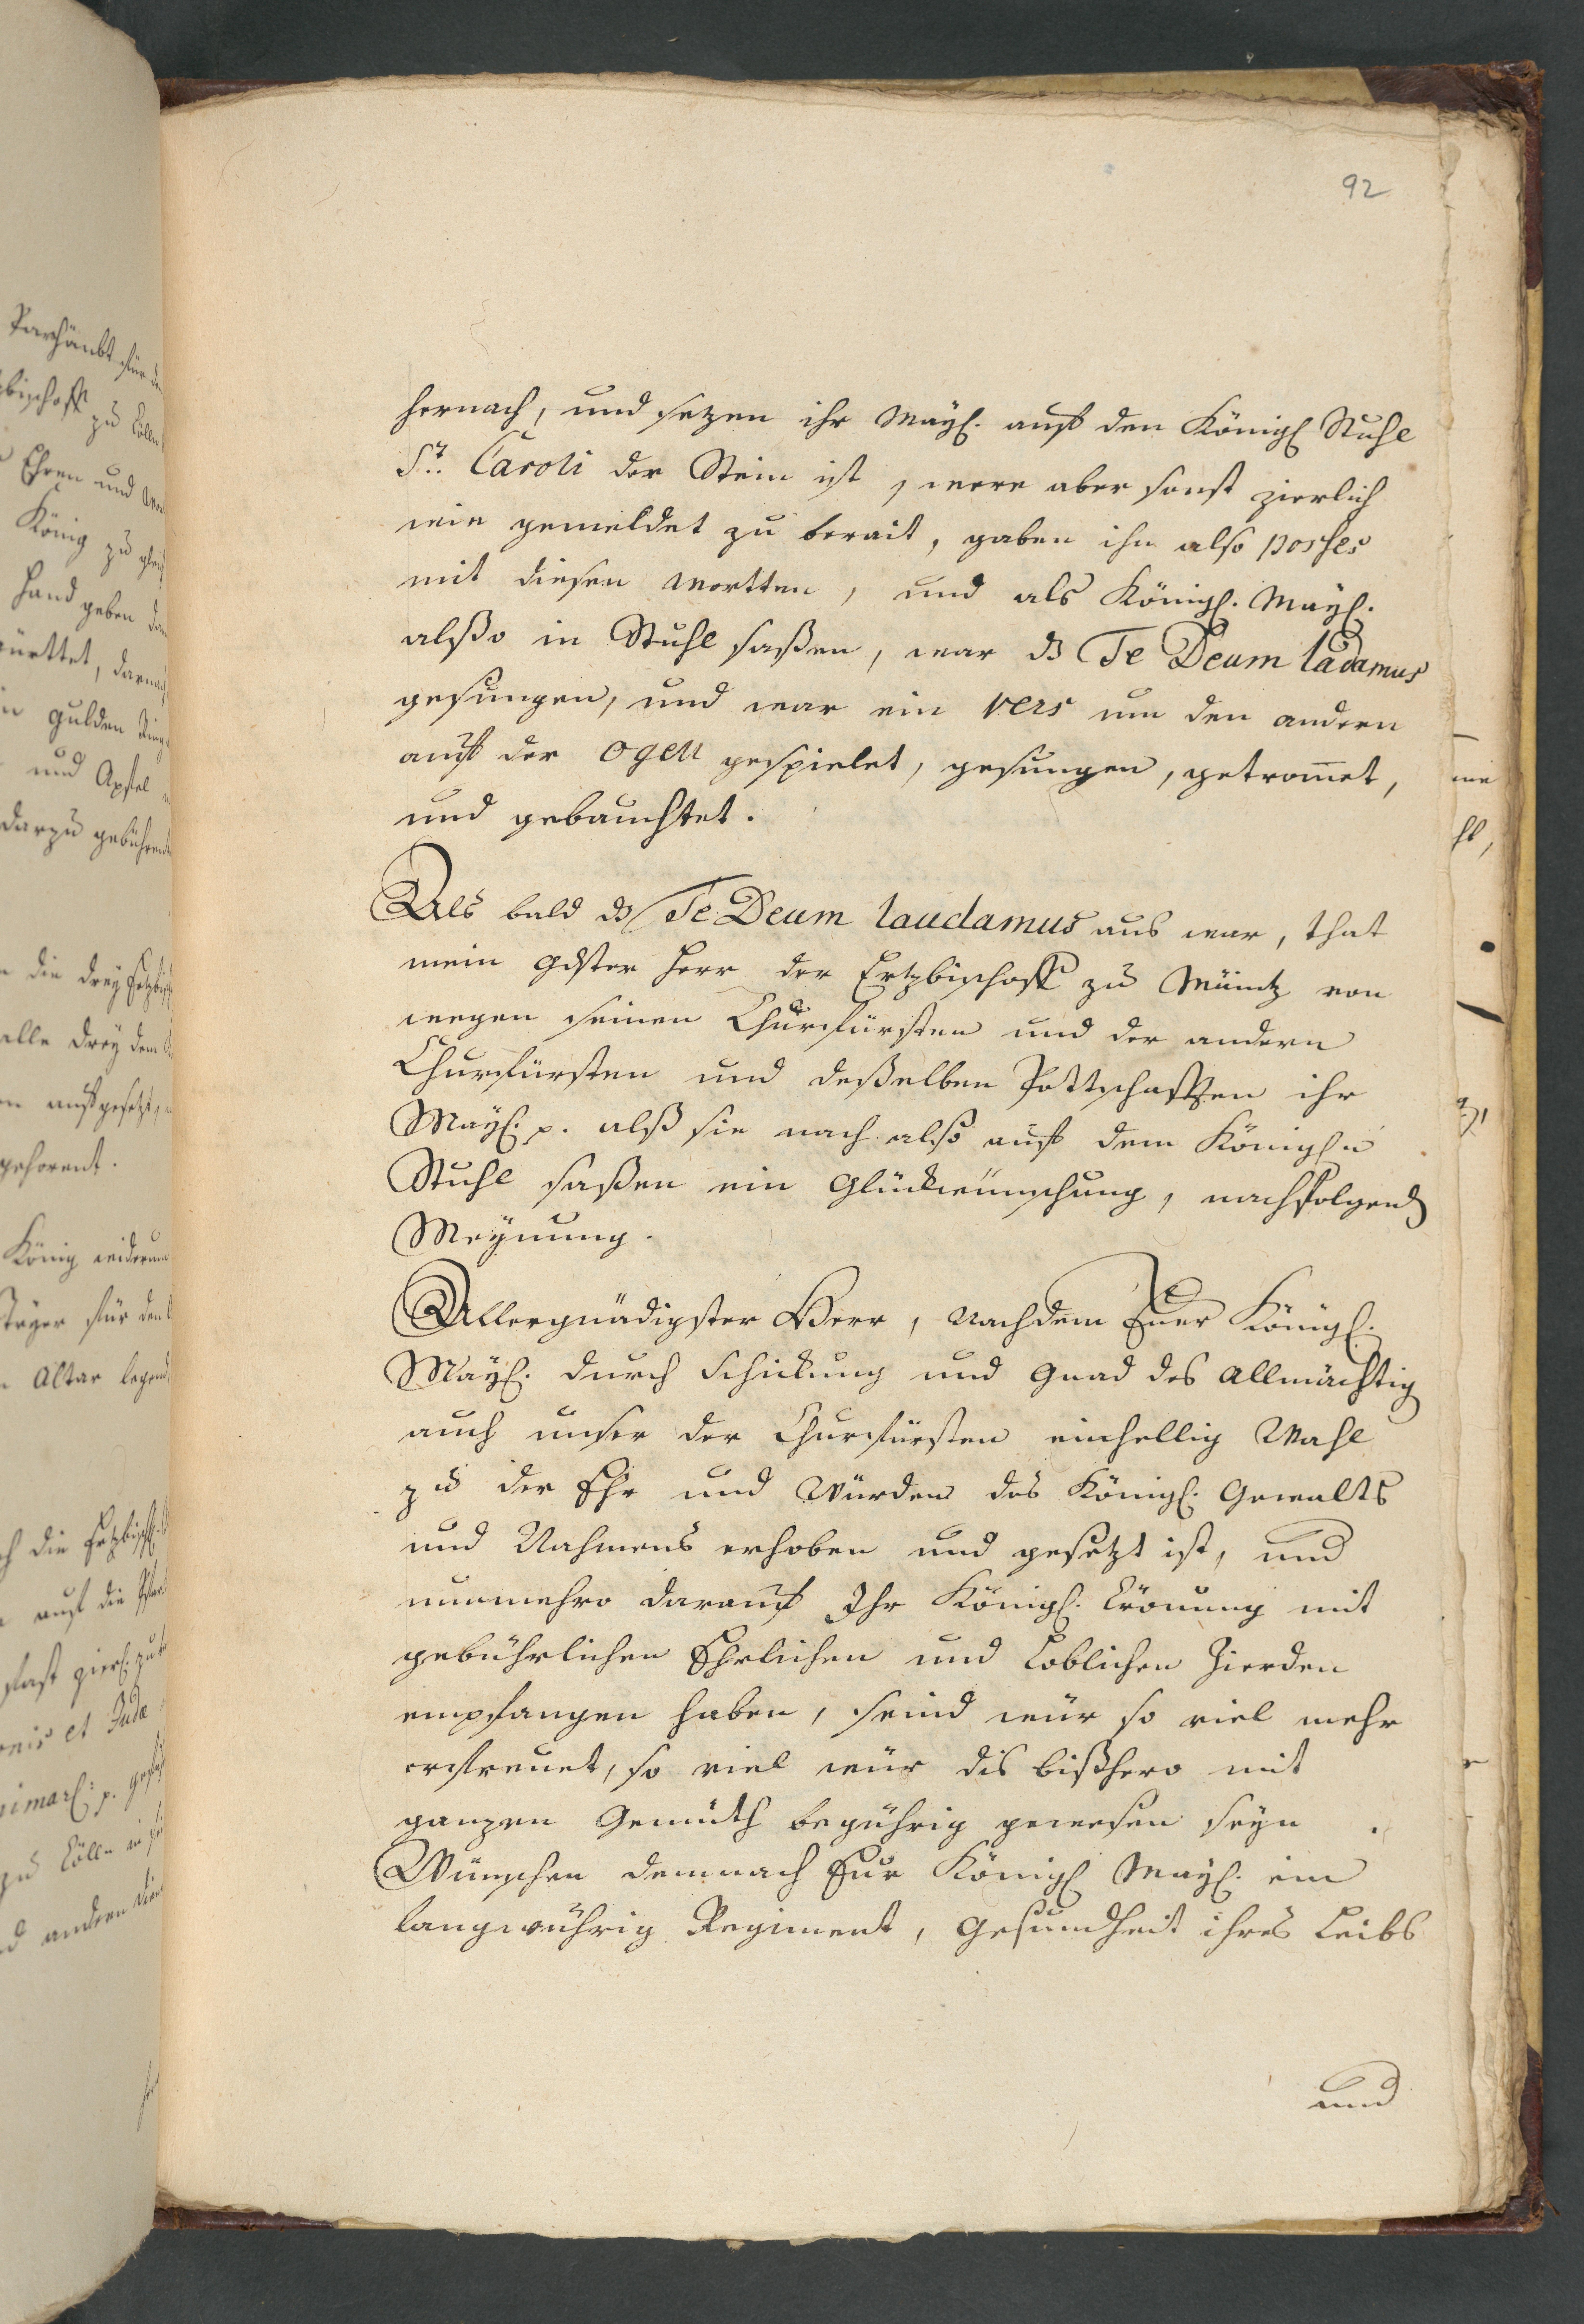 92
hernach, und sezen ihr Mayt. auff den Königl Stuhl
St. Caroli der Stein ist, were aber sonst zierlich
wie gemeldet zu berait, gaben ihn also posses
mit diesen wortten, und als Königl. Mayt.
alßo in Stuhl saßen, war ds Te Deum ladamus
gesungen, und war ein vers um den andern
auff der Ogell gespielet, gesungen, getrom̅et,
und gebauchtet.
Als bald ds Te Deum laudamus aus war, that
mein gdster Herr der Ertzbischoff zu Mäintz von
wegen seinen Churfürsten und der andern
Churfürsten und deßelben Pottschafften ihr
Mayt. p. alß sie nach also auff dem Königln
Stuhl saßen ein Glückwünschung, nachfolgend
Meynung.
Allergnädigster Herr, nachdem Euer Königl.
Mayt. durch Schickung und Gnad des Allmächtig
auch unser der Churfürsten einhellig Wahl
zu der Ehr und Würden des Königl. Gewalts
und Nahmens erhoben und gesetzt ist, und
nunmehro darauff Ihr Königl. Crönung mit
gebührlichen Ehrlichen und Loblichen Zierden
empfangen haben, seind wür so viel mehr
erfreuet, so viel wür dis bißhero mit
ganzen Gemüth begührig gewesen seyn.
Wünschen demnach Eur Königl Mayt. ein
langwührig Regiment, Gesundheit ihres Leibs
und